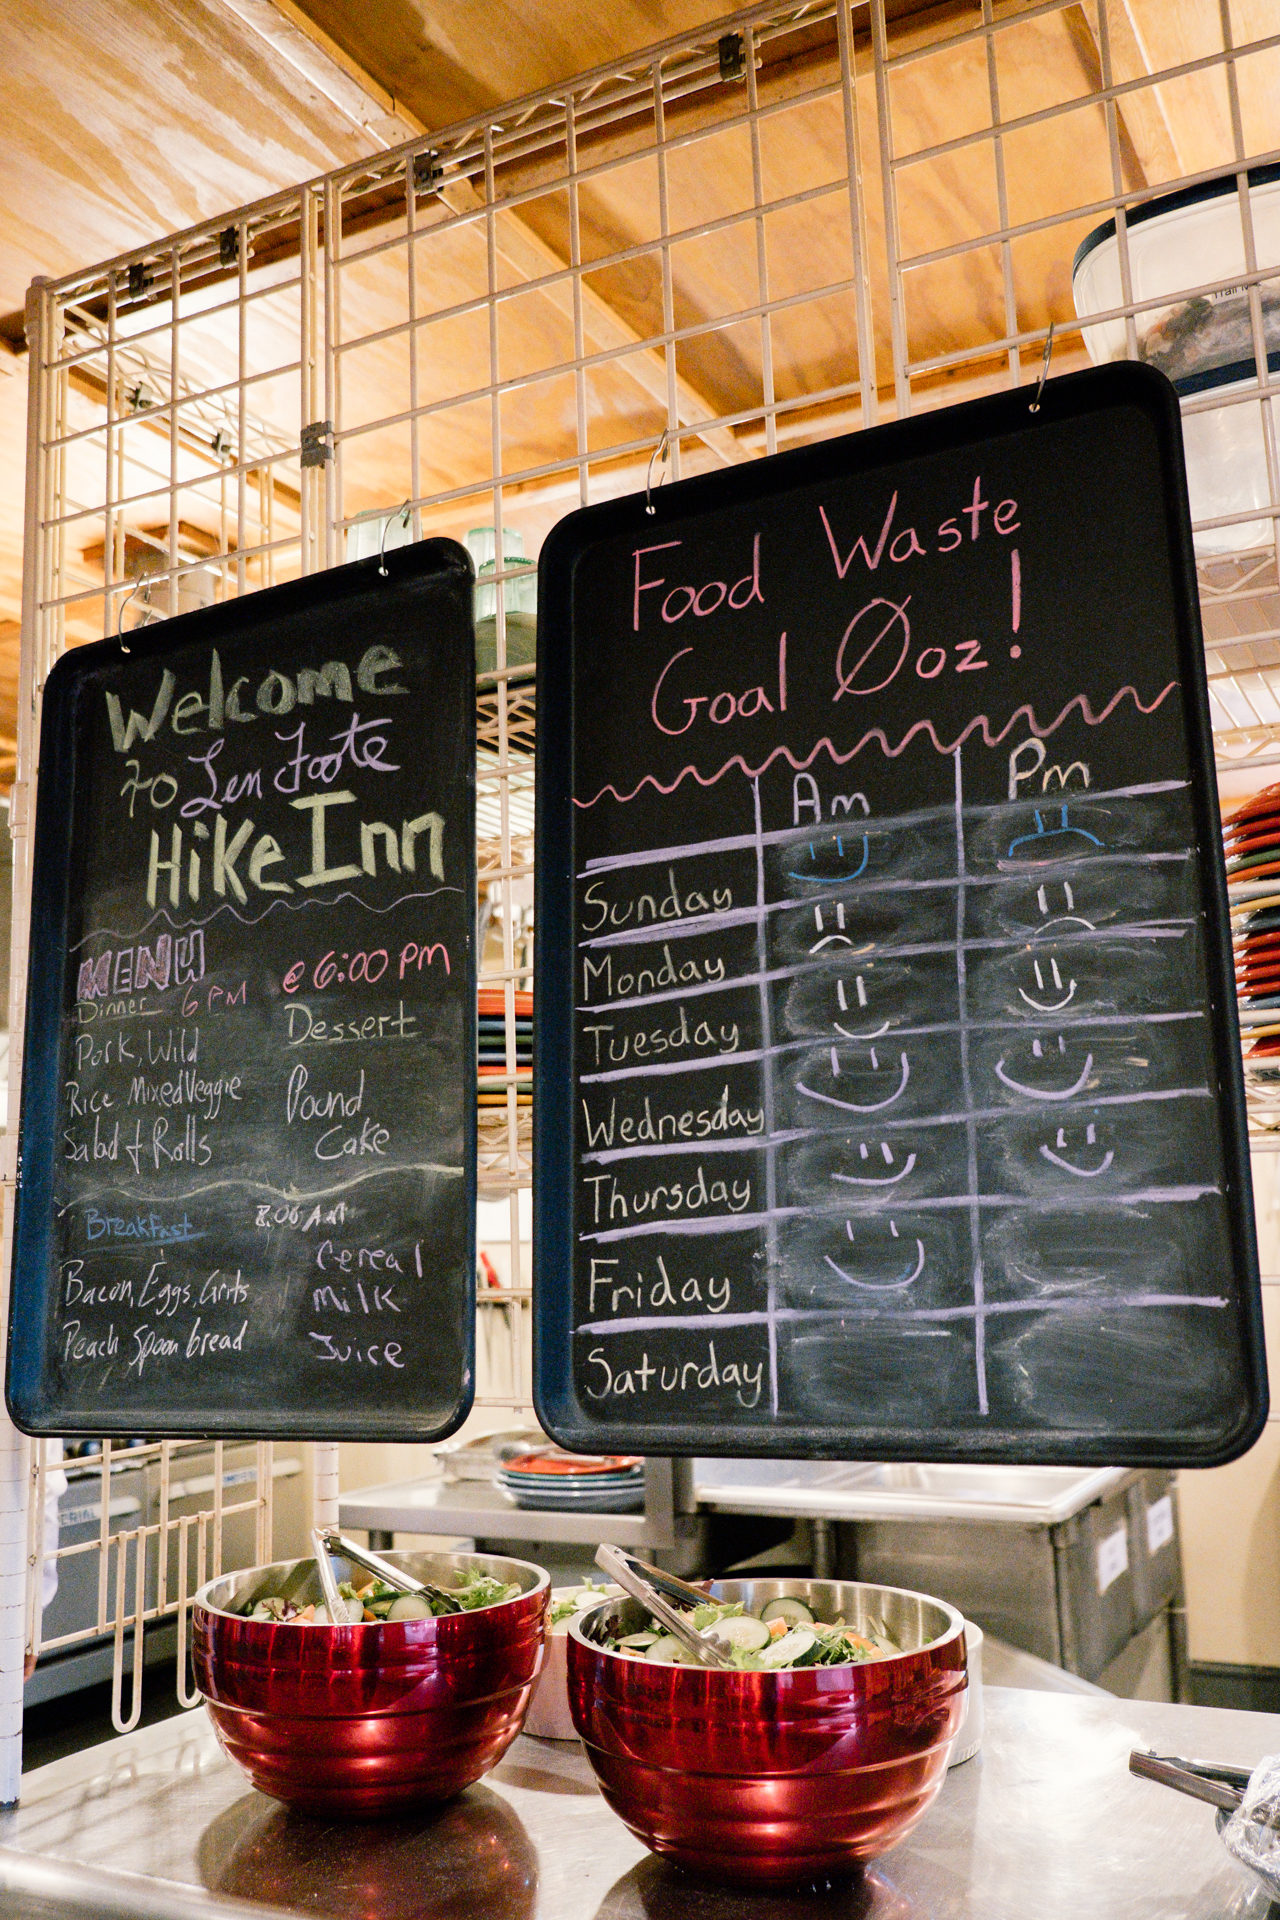 Welcome
to Len Foote
Hike Inn
MENU
@ 6:00 PM
Dinner 6 PM
Dessert
Pork, Wild
Rice Mixed Veggie
Salad & Rolls
Pound
Cake
Breakfast 8:00 AM
Bacon, Eggs, Grits
Peach Spoon bread
Cereal
Milk
Juice
Food Waste
Goal Ø oz!
Am Pm
Sunday
Monday
Tuesday
Wednesday
Thursday
Friday
Saturday